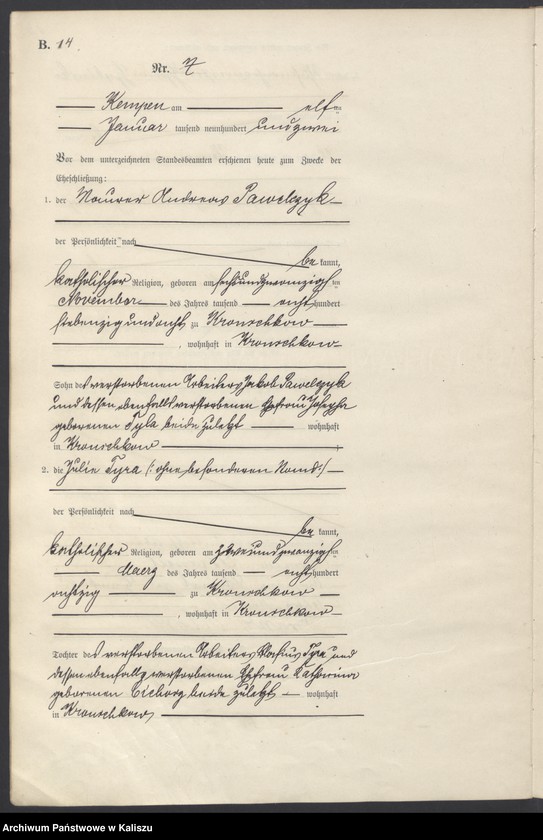 B. 14
Nr. 7
Kempen am elften
Januar tausend neunhundert und zwei
Vor dem unterzeichneten Standesbeamten erschienen heute zum Zwecke der
Eheschließung:
1. der Maurer Andreas Pawelczyk
der Persönlichkeit nach
be kannt,
katholischer Religion, geboren am sechsundzwanzigsten
November des Jahres tausend acht hundert
siebenzig und acht zu Kronschkow
, wohnhaft in Kronschkow
Sohn des verstorbenen Arbeiters Jakob Pawelczyk
und dessen ebenfalls verstorbenen Ehefrau Josepha
geborenen Tyla beide zuletzt wohnhaft
in Kronschkow
2. die Julie Tyra (: ohne besonderen :)
der Persönlichkeit nach
be kannt,
katholischer Religion, geboren am zweiundzwanzigsten
Maerz des Jahres tausend acht hundert
achtzig zu Kronschkow
, wohnhaft in Kronschkow
Tochter des verstorbenen Arbeiters Tyra und
dessen ebenfalls verstorbenen Ehefrau Katharina
geborenen beide zuletzt wohnhaft
in Kronschkow
Archiwum Państwowe w Kaliszu